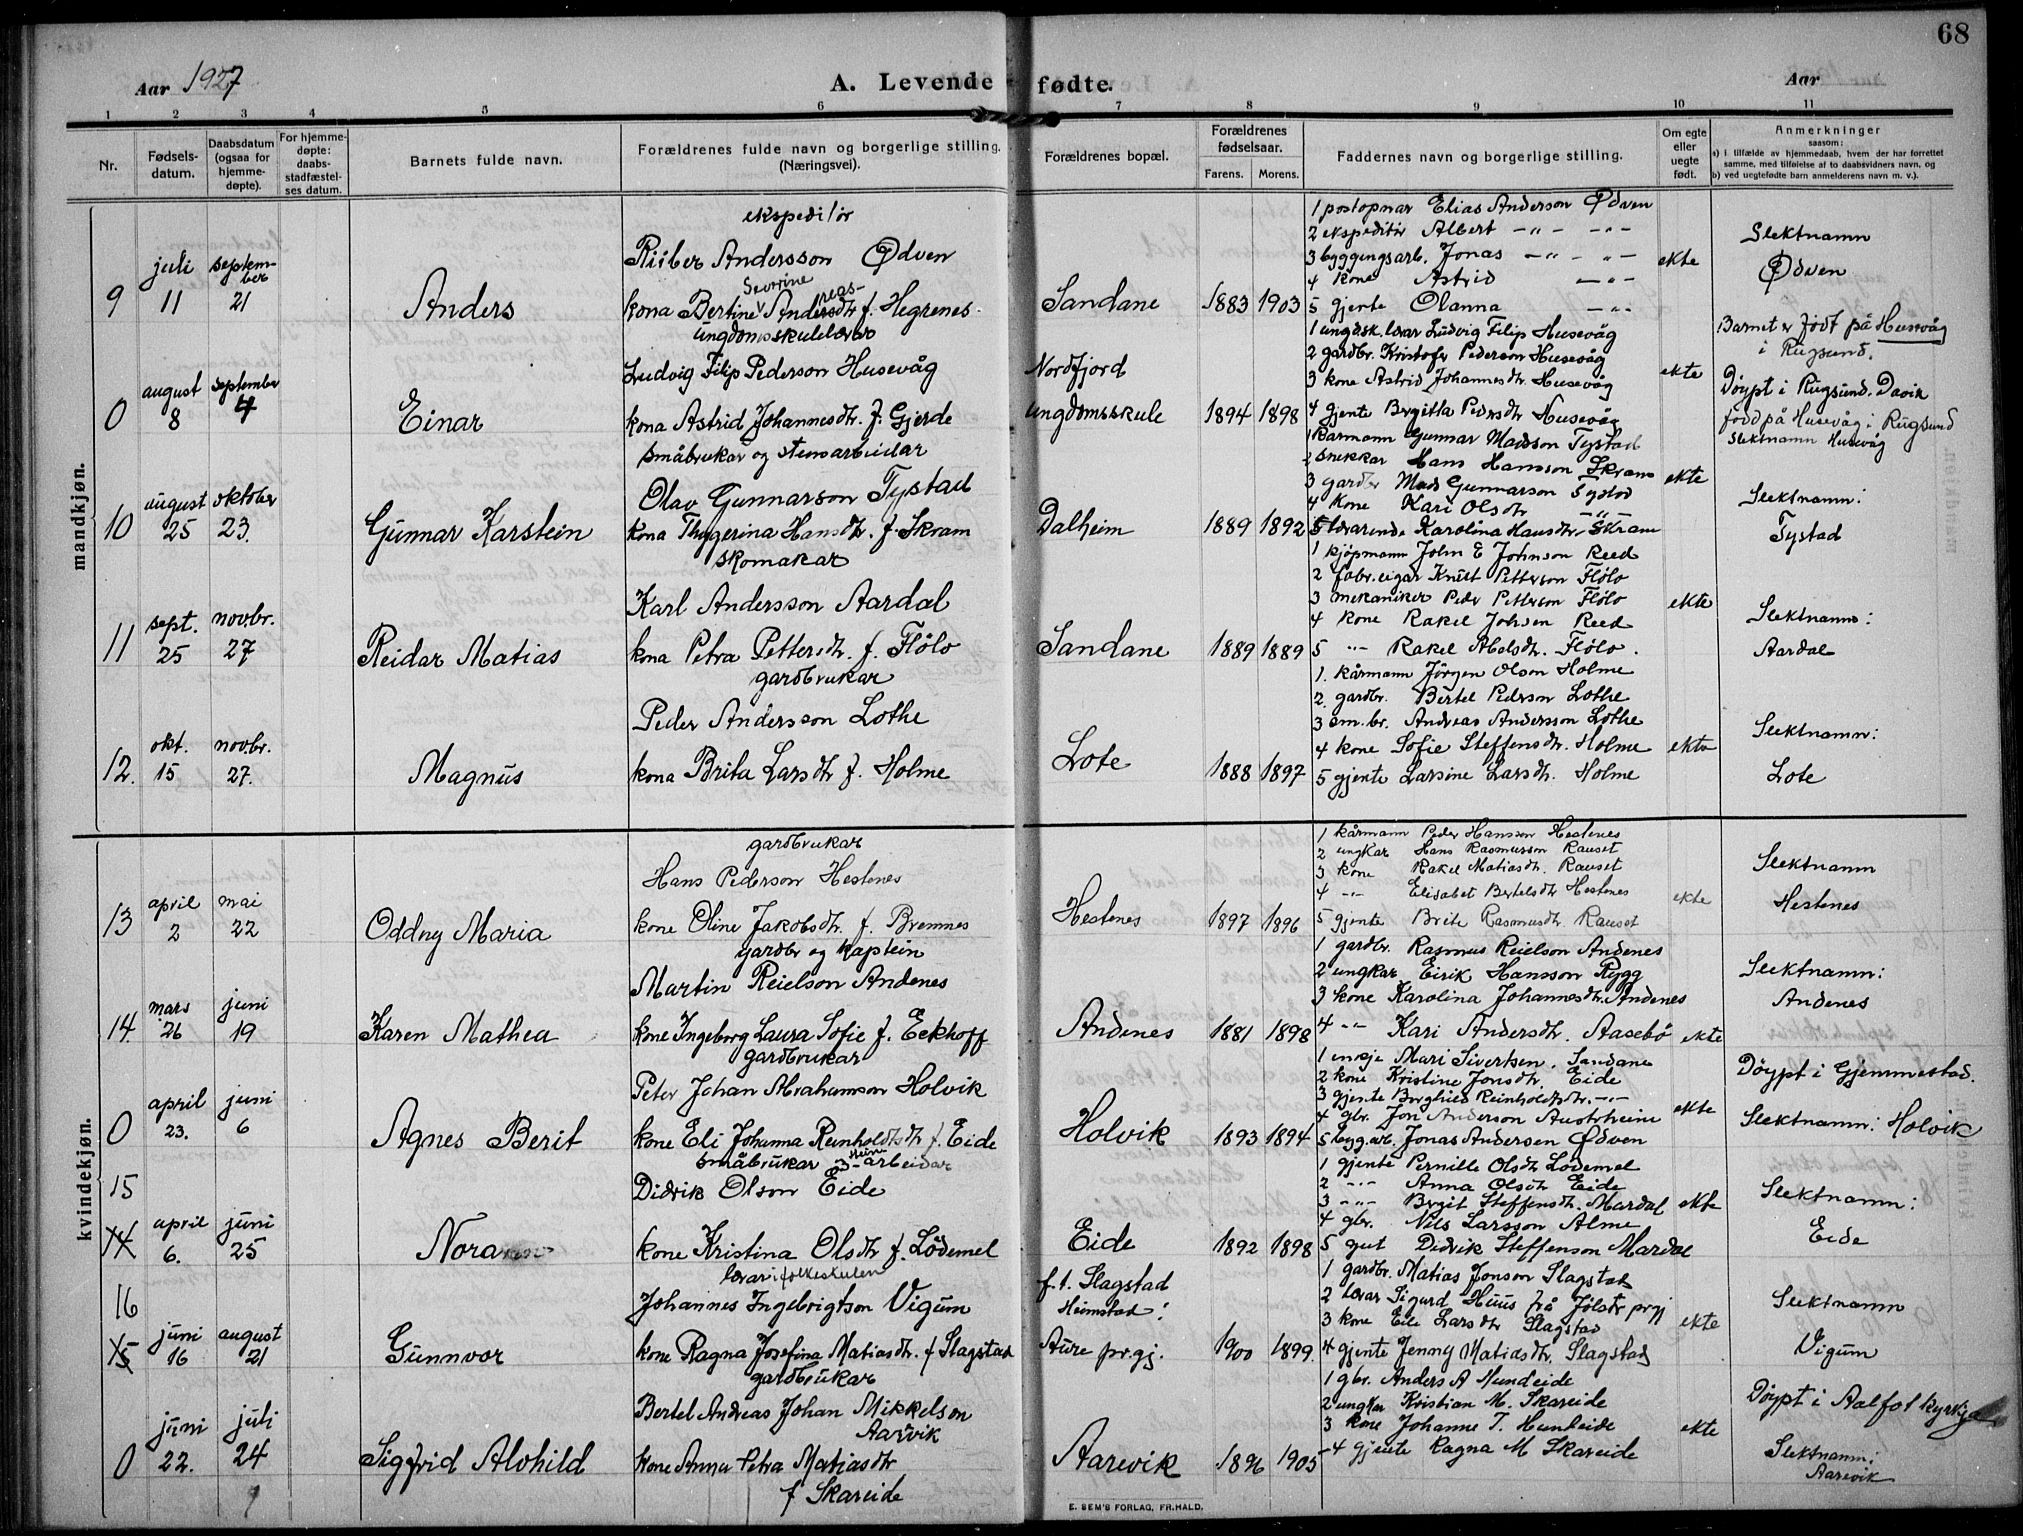 68
Aar 1927
A. Levende fødte.
Aar
1 2 3 4 5 6 7 8 9 10 11
Nr.
Fødsels-
datum.
Daabsdatum
(ogsaa for
hjemme-
døpte).
For hjemme-
døpte:
daabs-
stadfæstel-
ses datum.
Barnets fulde navn.
Forældrenes fulde navn og borgerlige stilling.
(Næringsvei).
Forældrenes bopæl.
Forældrenes
fødselsaar.
Farens. Morens.
Faddernes navn og borgerlige stilling.
Om egte
eller
uegte
født.
Anmerkninger
saasom:
a) i tilfælde av hjemmedaab, hvem der har forrettet
samme, med tilføielse af to daabsvidners navn, og
b) ved uegtefødte barn anmelderens navn m. v.).
mandkjøn.
9
juli
11
septem-
ber
21
Anders
ekspeditør
Riiber Andersson Ødven
Severine
kona Bertine Andreasdtr. f. Hegrenes.
Sandane
1883 1903
1 postopnar Elias Anderson Ødven
2 ekspeditör Albert -"- -"-
3 byggingsarb. Jonas -"- -"-
4 kone Astrid -"-
5 gjente Olanna -"-
ekte
Slektnamn
Ødven
0
august
8
september
4
Einar
ungdomsskulelærar
Ludvig Filip Pederson Husevåg
kona Astrid Johannesdtr. f. Gjerde
Nordfjord
ungdomsskule
1894 1898
1 ungdsk. lærar Ludvig Filip Husevåg
2 gardbr. Kristofer Pederson Husevåg
3 kone Astrid Johannesdtr. Husevåg
4 gjente Bergitta Pedersdtr Husevåg
ekte
Barnet er født på Husevåg
i Rugsund.
Døypt i Rugsund. Davik
född på Husevåg i Rugsund
Slektnamn Husevåg
10
august
25
oktober
23.
Gunnar Karstein
småbrukar og steinarbeidar
Olav Gunnarson Tystad
kona Thygerina Hansdtr. f. Skram
Dalheim
1889 1892
1 kårmann Gunnar Madsson Tystad
2 snekkar Hans Hansson Skram
3 gardbr Mads Gunnarson Tystad
4 kone Kari Olsdtr -"-
5 lærarinde Karolina Hansdtr. Skram
ekte
Slektnamn:
Tystad
11
sept.
25
novbr.
27
Reidar Matias
skomakar
Karl Andersson Aardal
kona Petra Pettersdtr. f. Flölo
Sandane
1889 1889
1 kjöpmann John E Johnson Reed
2 fabr. eigar Knut Petterson Flölo
3 mekaniker Peder Petterson Flölo
4 kone Rakel Johsen Reed
5 -"- Rakel Abelsdtr. Flölo.
ekte
Slektnamn:
Aardal
12.
okt.
15
novbr.
27.
Magnus
gardbrukar
Peder Andersson Lothe
kona Brita Larsdtr f. Holme
Lote
1888 1897
1. kårmann Jörgen Olson Holme
2. gardbr. Bertel Pederson Lothe
3 sm. br. Andreas Andersson Lothe
4 kone Sofie Steffensdtr. Holme
5 gjente Larsine Larsdtr. Holme
ekte
Slektnamn:
Lote
kvindekjøn.
13
april
2
mai
22
Oddny Maria
gardbrukar
Hans Pederson Hestenes
kone Oline Jakobsdtr. f. Bremnes
Hestenes
1897 1896
1 kårmann Peder Hansson Hestenes
2 ungkar Hans Rasmusson Rauset
3 kone Rakel Matiasdtr. Rauset
4 -"- Elisabet Bertelsdtr Hestenes
5 gjente Brite Rasmusdtr Rauset
ekte
Slektnamn
Hestenes
14.
mars
26
juni
19
Karen Mathea
gardbr og kaptein
Martin Reielson Andenes
kone Ingeborg Laura Sofie f. Eckhoff
Andenes
1881 1898
1 gardbr. Rasmus Reielson Andenes
2 ungkar Eirik Hansson Rygg
3 kone Karolina Johannesdtr. Andenes
4 -"- Kari Andersdtr. Aasebö
ekte
Slektnamn:
Andenes
0
april
23.
juni
6
Agnes Berit
gardbrukar
Peter Johan Abrahamson Holvik
kone Eli Johanna Reinholdtsdtr f. Eide
Holvik
1893 1894
1 enkje Mari Sivertsen. Sandane
2 kone Kristine Jonsdtr. Eide
3 gjente Borghild Reinholdtsdtr. -"-
4 gbr. Jon Anderson Austrheim
5 byg. arb. Jonas Andersen Ødven
ekte
Døypt i Gjemmestad.
Slektnamn: Holvik
15
14
april
6.
juni
25
Nora
småbrukar og steinarbeidar
Didrik Olson Eide
kone Kristina Olsdtr f. Lödemel
Eide
1892 1898
1 gjente Pernille Olsdtr Lödemel
2 -"- Anna Olsdtr Eide
3 -"- Bergit Steffensdtr. Mardal
4 gbr. Nils Larsson Alme
5 gut Didrik Steffenson Mardal
ekte
Slektnamn:
Eide
16
15
juni
16
august
21
Gunnvor
lærar i folkeskulen
Johannes Ingebrigtson Vigum
kone Ragna Josefina Matiasdtr. f Slagstad
f. t. Slagstad
Heimstad:
Aure prgj.
1900 1899.
1 gardbr. Matias Jonson Slagstad
2 lærar Sigurd Huus frå Jölstr prgj
3 kone Eli Larsdtr Slagstad
4 gjente Jenny Matiasdtr. Slagstad
ekte
Slektnamn
Vigum
0
juni
22.
juli
24
Sigfrid Alvhild
gardbrukar
Bertel Andreas Johan Mikkelson
Aarvik
kone Anna Petra Matiasdtr
f Skareide
Aarevik
1896 1905
1 gbr. Anders A Hundeide
2 ungkar Kristian M. Skareide
3 kone Johanne T. Hundeide
4 gjente Ragna M Skareide
ekte
Døypt i Aalfot kyrkja
Slektnamn:
Aarevik
E. SEM'S FORLAG, FR.HALD.